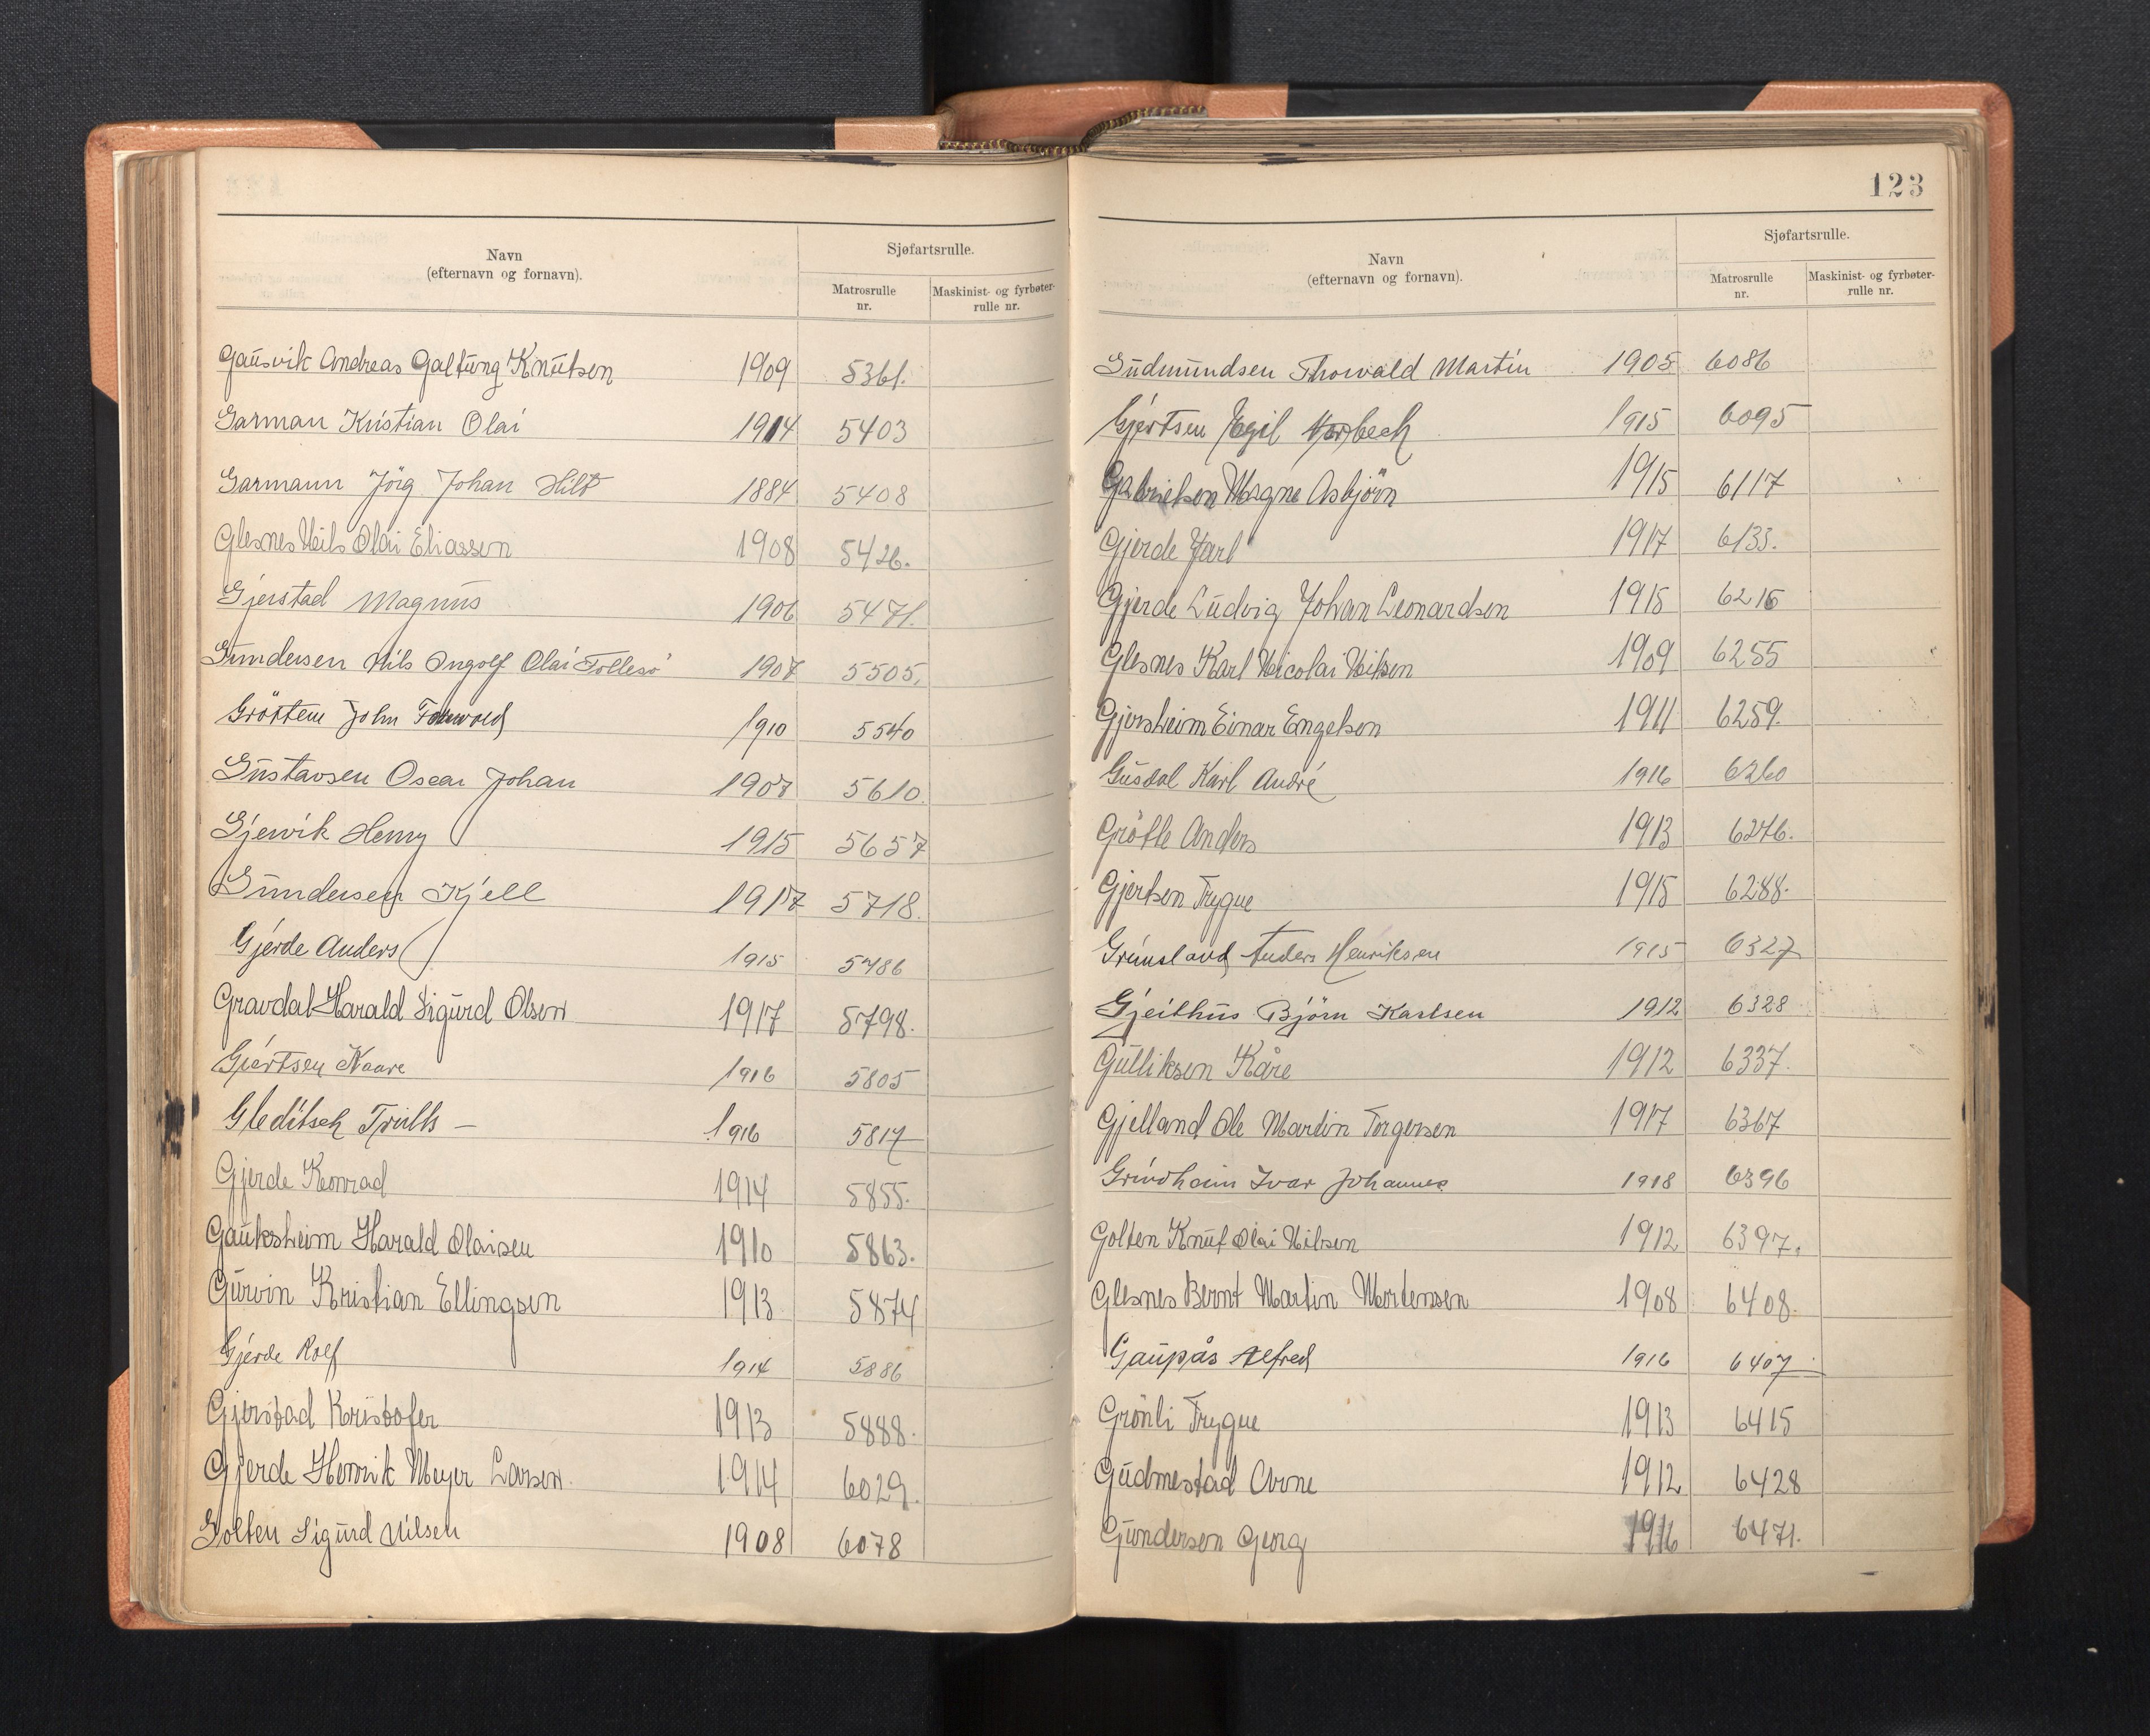 Navn
(efternavn og fornavn).
Sjøfartsrulle.
Matrosrulle
nr.
Maskinist- og fyrbøter-
rulle nr.
Gausvik Andreas Galtung Knutsen 1909 5361.
Garman Kristian Olai 1914 5403
Garmann Jörg Johan Hilt 1884 5408
Glesnes Nils Olai Eliassen 1908 5426.
Gjerstad Magnus 1906 5471.
Gundersen Nils Ingolf Olai Follesö 1907 5505.
John 1910 5540
Gustavsen Oscar Johan 1907 5610.
Gjervik Henry 1915 5657
Gundersen Kjell 1917 5718.
Gjerde Anders 1915 5786
Gravdal Harald Sigurd Olsen 1917 5798.
Gjertsen Kaare 1916 5805
Gleditsch Trulls – 1916 5817
Gjerde Konrad 1914 5855.
Gauksheim Harald Olaisen 1910 5863.
Gurvin Kristian Ellingsen 1913 5874
Gjerde Rolf 1914 5886
Gjerstad Kristofer 1913 5888.
Gjerde Henrik Meyer Larsen. 1914 6029.
Golten Sigurd Nilsen 1908 6078
123
Navn
(efternavn og fornavn).
Sjøfartsrulle.
Matrosrulle
nr.
Maskinist- og fyrbøter-
rulle nr.
Gudmundsen Thorvald Martin 1905 6086
Gjertsen Egil 1915 6095
Gabrielsen Magne Asbjörn 1915 6117
Gjerde Jarl 1917 6135.
Gjerde Ludvig Johan Leonardsen 1915 6216
Glesnes Karl Nicolai Nilsen 1909 6255
Gjersheim Einar Engelsen 1911 6259.
Gusdal Karl André 1916 6260
Grötle Anders 1913 6276.
Gjertsen Trygve 1915 6288.
Grimsland Anders Henriksen 1915 6327
Gjeithus Björn Karlsen 1912 6328
Gulliksen Kåre 1912 6337.
Gjelland Ole Martin Torgersen 1917 6367
Grindheim Ivar Johannes 1918 6396
Golten Knut Olai Nilsen 1912 6397.
Glesnes Bernt Martin Mortensen 1908 6408.
Gaupås Alfred 1916 6407
Grönli Trygve 1913 6415
Gudmestad Arne 1912 6428
Gundersen Georg 1916 6471.